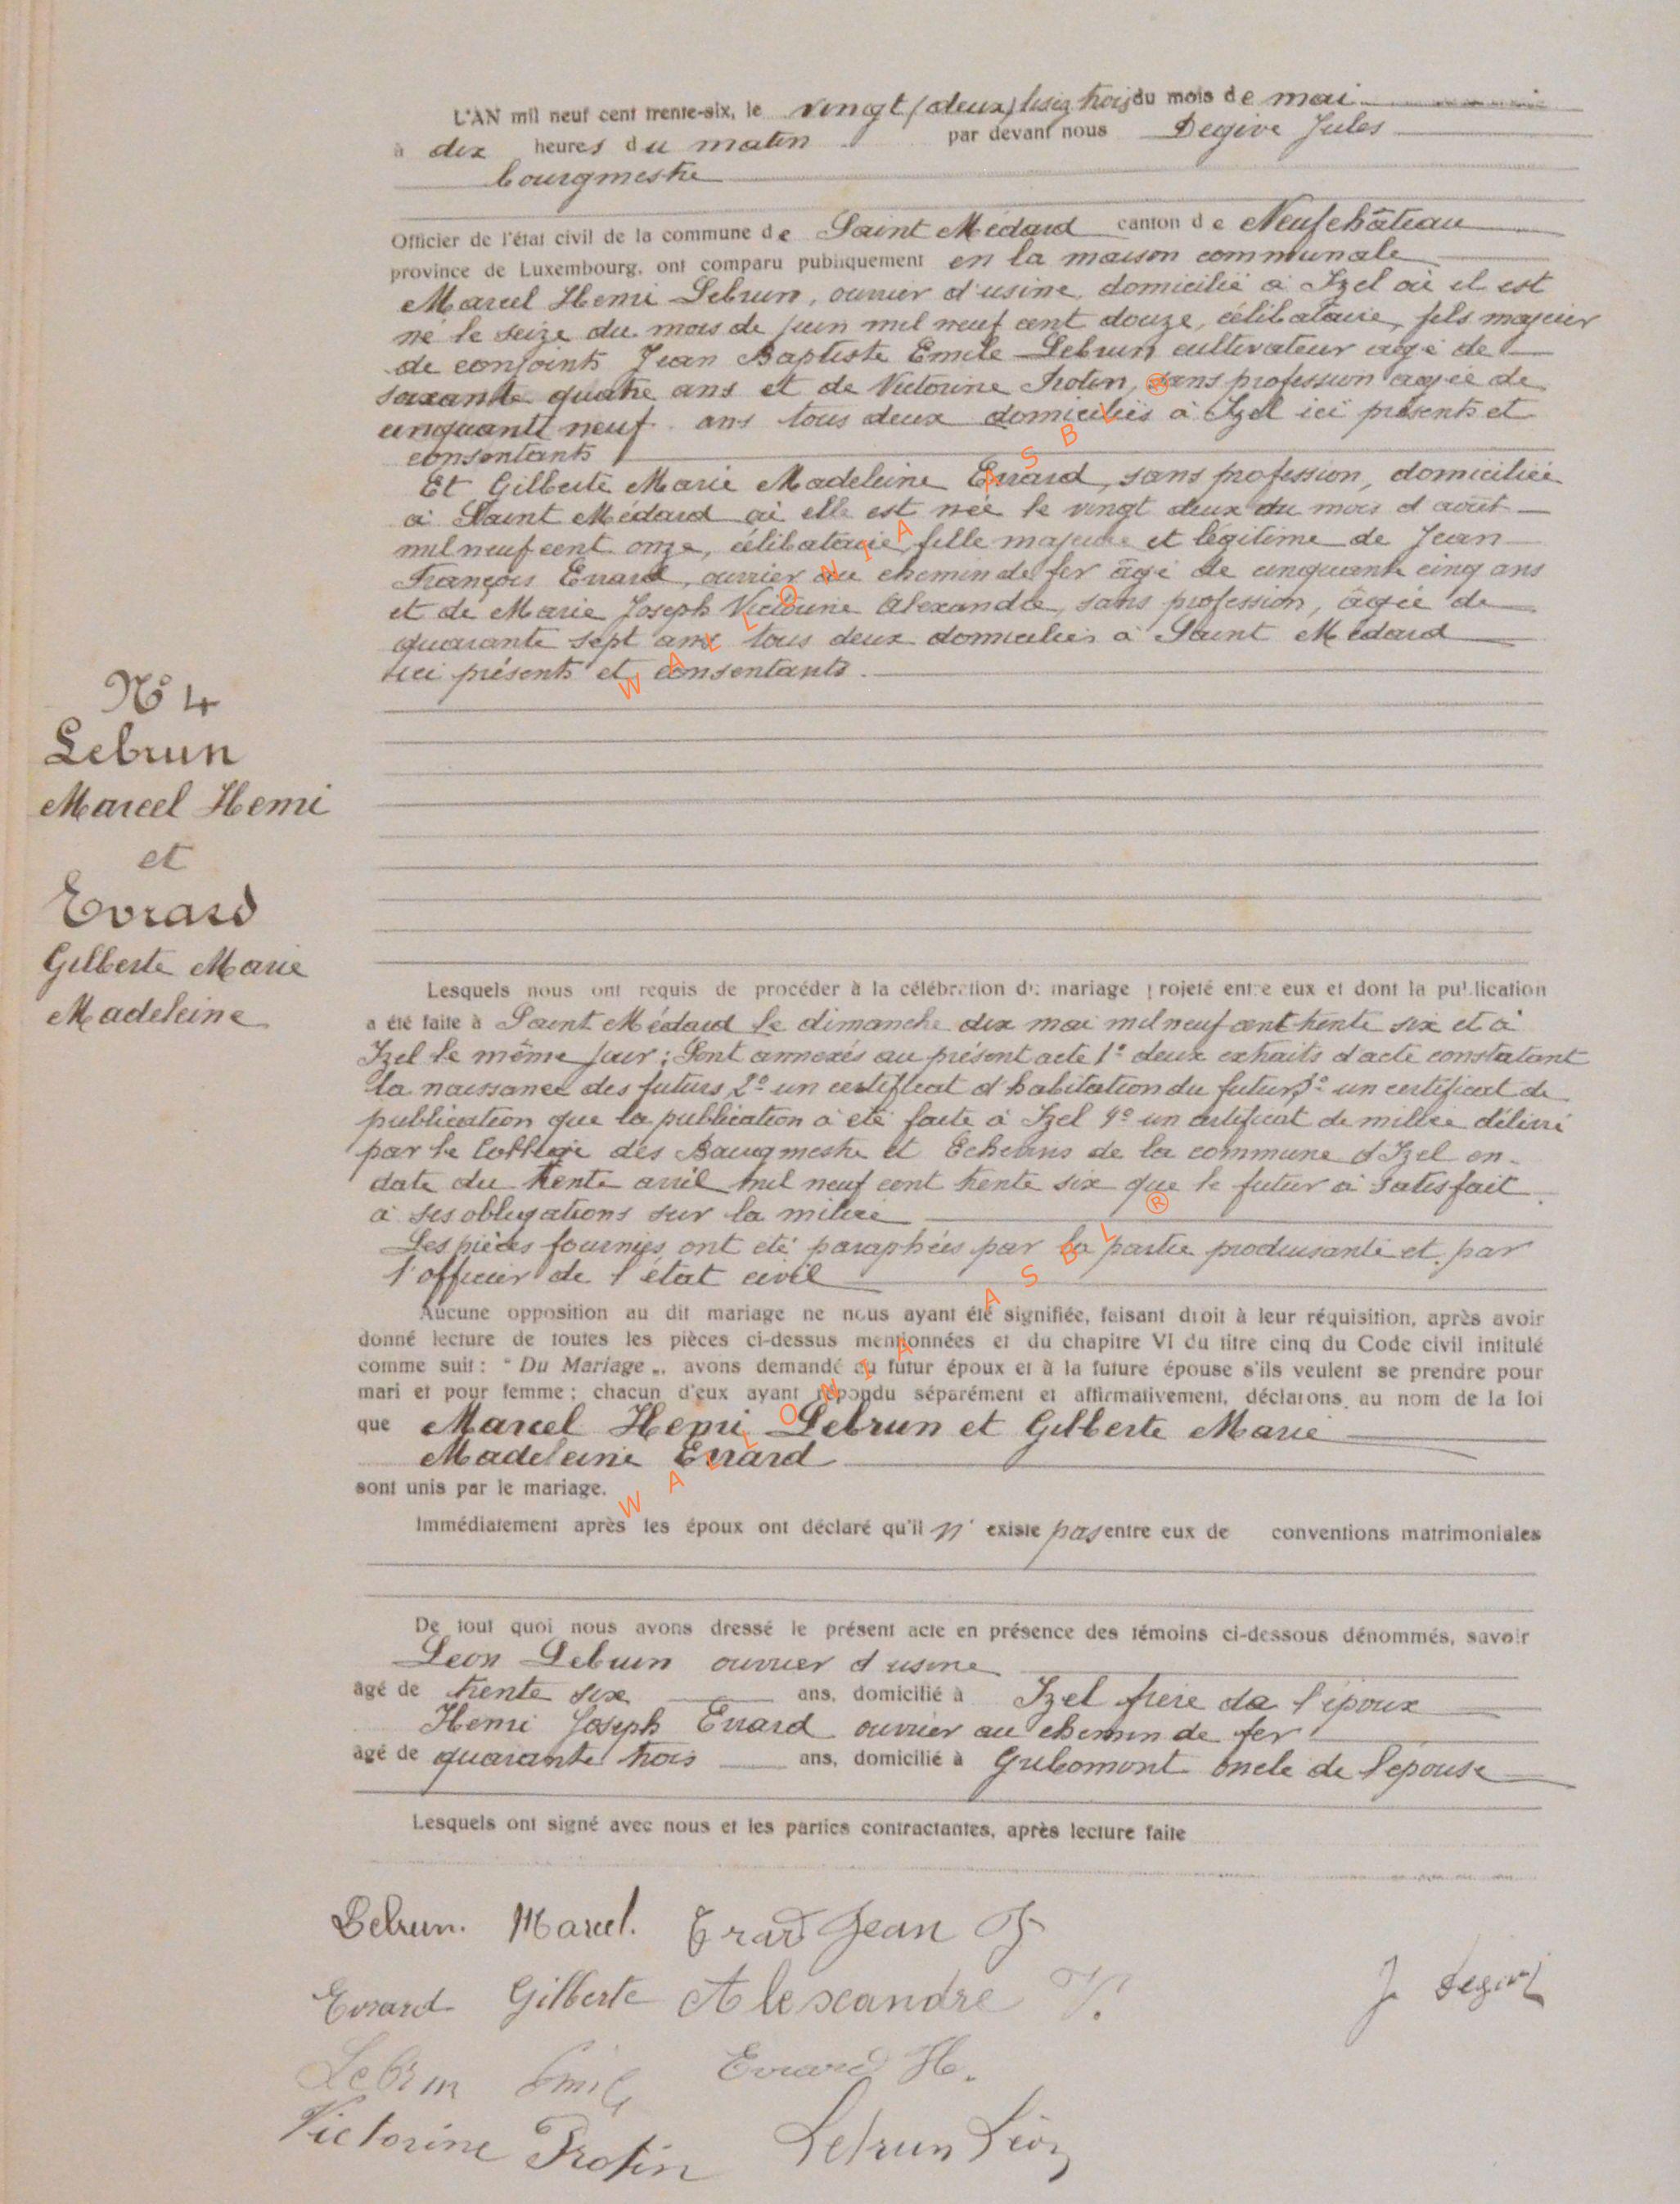 L'AN mil neuf cent trente-six, le vingt (deux) lisez trois du mois de mai
à dix heures du matin par devant nous Degive Jules
bourgmestre
Officier de l'état civil de la commune de Saint Médard canton de Neufchâteau
province de Luxembourg, ont comparu publiquement en la maison communale
Marcel Henri Lebrun, ouvrier d'usine, domicilié à Izel où il est
né le seize du mois de juin mil neuf cent douze, célibataire, fils majeur
de conjoints Jean Baptiste Emile Lebrun cultivateur âgé de
soixante quatre ans et de Victorine Protin, sans profession âgée de
cinquante neuf ans tous deux domiciliés à Izel ici présents et
consentants
Et Gilberte Marie Madeleine Evrard, sans profession, domiciliée
à Saint Médard où elle est née le vingt deux du mois d'août
mil neuf cent onze, célibataire, fille majeure et légitime de Jean
François Evrard, ouvrier au chemin de fer âgé de cinquante cinq ans
et de Marie Joseph Victorine Alexandre, sans profession, âgée de
quarante sept ans tous deux domiciliés à Saint Médard
ici présents et consentants.
N° 4
Lebrun
Marcel Henri
et
Evrard
Gilberte Marie
Madeleine
Lesquels nous ont requis de procéder à la célébration du mariage projeté entre eux et dont la publication
a été faite à Saint Médard le dimanche dix mai mil neuf cent trente six et à
Izel le même jour ; Sont annexés au présent acte 1° deux extraits d'acte constatant
la naissance des futurs, 2° un certificat d'habitation du futur 3° un certificat de
publication que la publication a été faite à Izel 4° un certificat de milice délivré
par le Collège des Bourgmestre et Echevins de la commune d'Izel en
date du trente avril mil neuf cent trente six que le futur a satisfait
à ses obligations sur la milice
Les pièces fournies ont été paraphées par la partie produisante et par
l'officier de l'état civil
Aucune opposition au dit mariage ne nous ayant été signifiée, faisant droit à leur réquisition, après avoir
donné lecture de toutes les pièces ci-dessus mentionnées et du chapitre VI du titre cinq du Code civil intitulé
comme suit : " Du Mariage „, avons demandé au futur époux et à la future épouse s'ils veulent se prendre pour
mari et pour femme ; chacun d'eux ayant répondu séparément et affirmativement, déclarons au nom de la loi
que Marcel Henri Lebrun et Gilberte Marie
Madeleine Evrard
sont unis par le mariage.
Immédiatement après les époux ont déclaré qu'il n' existe pas entre eux de conventions matrimoniales
De tout quoi nous avons dressé le présent acte en présence des témoins ci-dessous dénommés, savoir
Leon Lebrun ouvrier d'usine
âgé de trente six ans, domicilié à Izel frère de l'époux
Henri Joseph Evrard ouvrier au chemin de fer
âgé de quarante trois ans, domicilié à Gribomont oncle de l'épouse
Lesquels ont signé avec nous et les parties contractantes, après lecture faite
Lebrun. Marcel. Evrard Jean F
Evrard Gilberte Alexandre V. J Degive
Lebrun Emile Evrard H.
Victorine Protin Lebrun Léon
WALLONIA ASBL ®
WALLONIA ASBL ®